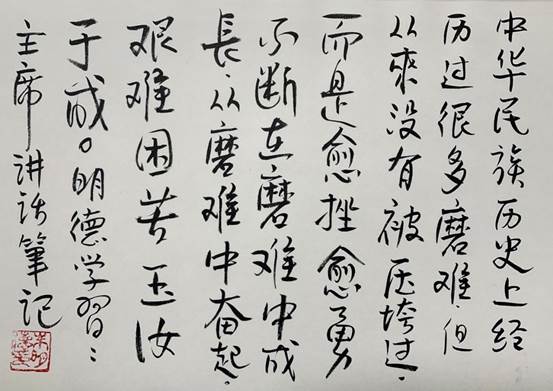 中华民族历史上经
历过很多磨难，但
从來没有被压垮过，
而是愈挫愈勇
不断在磨难中成
長，从磨难中奋起，
艰难困苦玉汝
于成。明德学習〻
主席讲话筆记